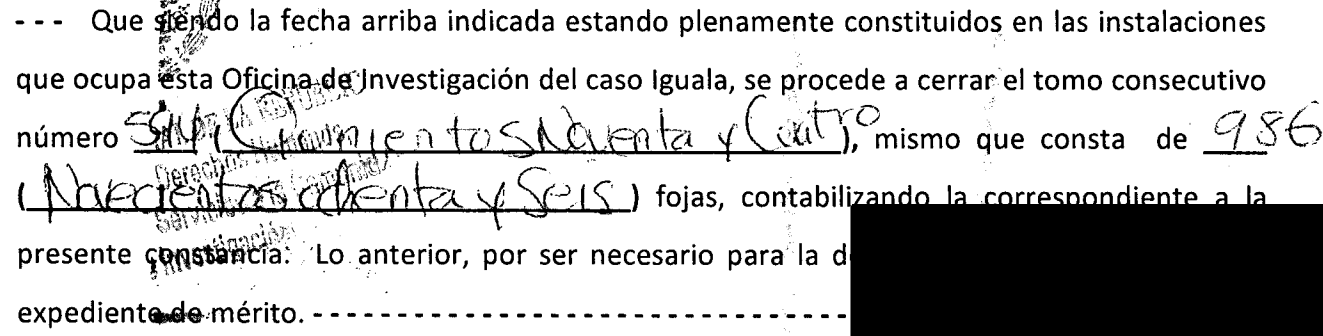 --- Que siendo la fecha arriba indicada estando plenamente constituidos en las instalaciones
que ocupa esta Oficina de Investigación del caso Iguala, se procede a cerrar el tomo consecutivo
número 594 (Quinientos Noventa y Cuatro), mismo que consta de 986
(Novecientos ochenta y Seis) fojas, contabilizando la correspondiente a la
presente constancia. Lo anterior, por ser necesario para la
expediente de mérito. - - - - - - - - - - - - - - - - - - - - - - - - - - - - - -